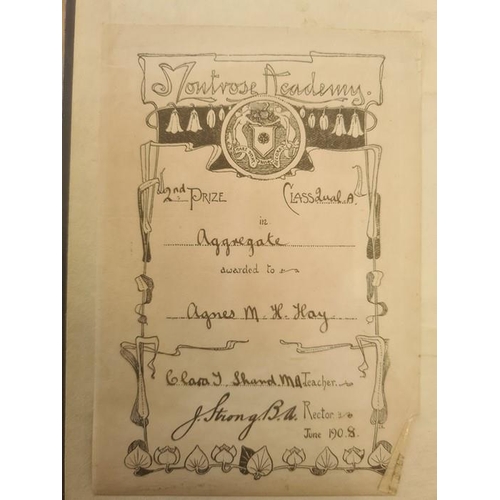 Montrose Academy.
2nd PRIZE CLASS Qual. A.
in
Aggregate
awarded to
Agnes M. H. Hay
Clara J. Shand. M.A. Teacher.
J. Strong B.A. Rector
June 1908.